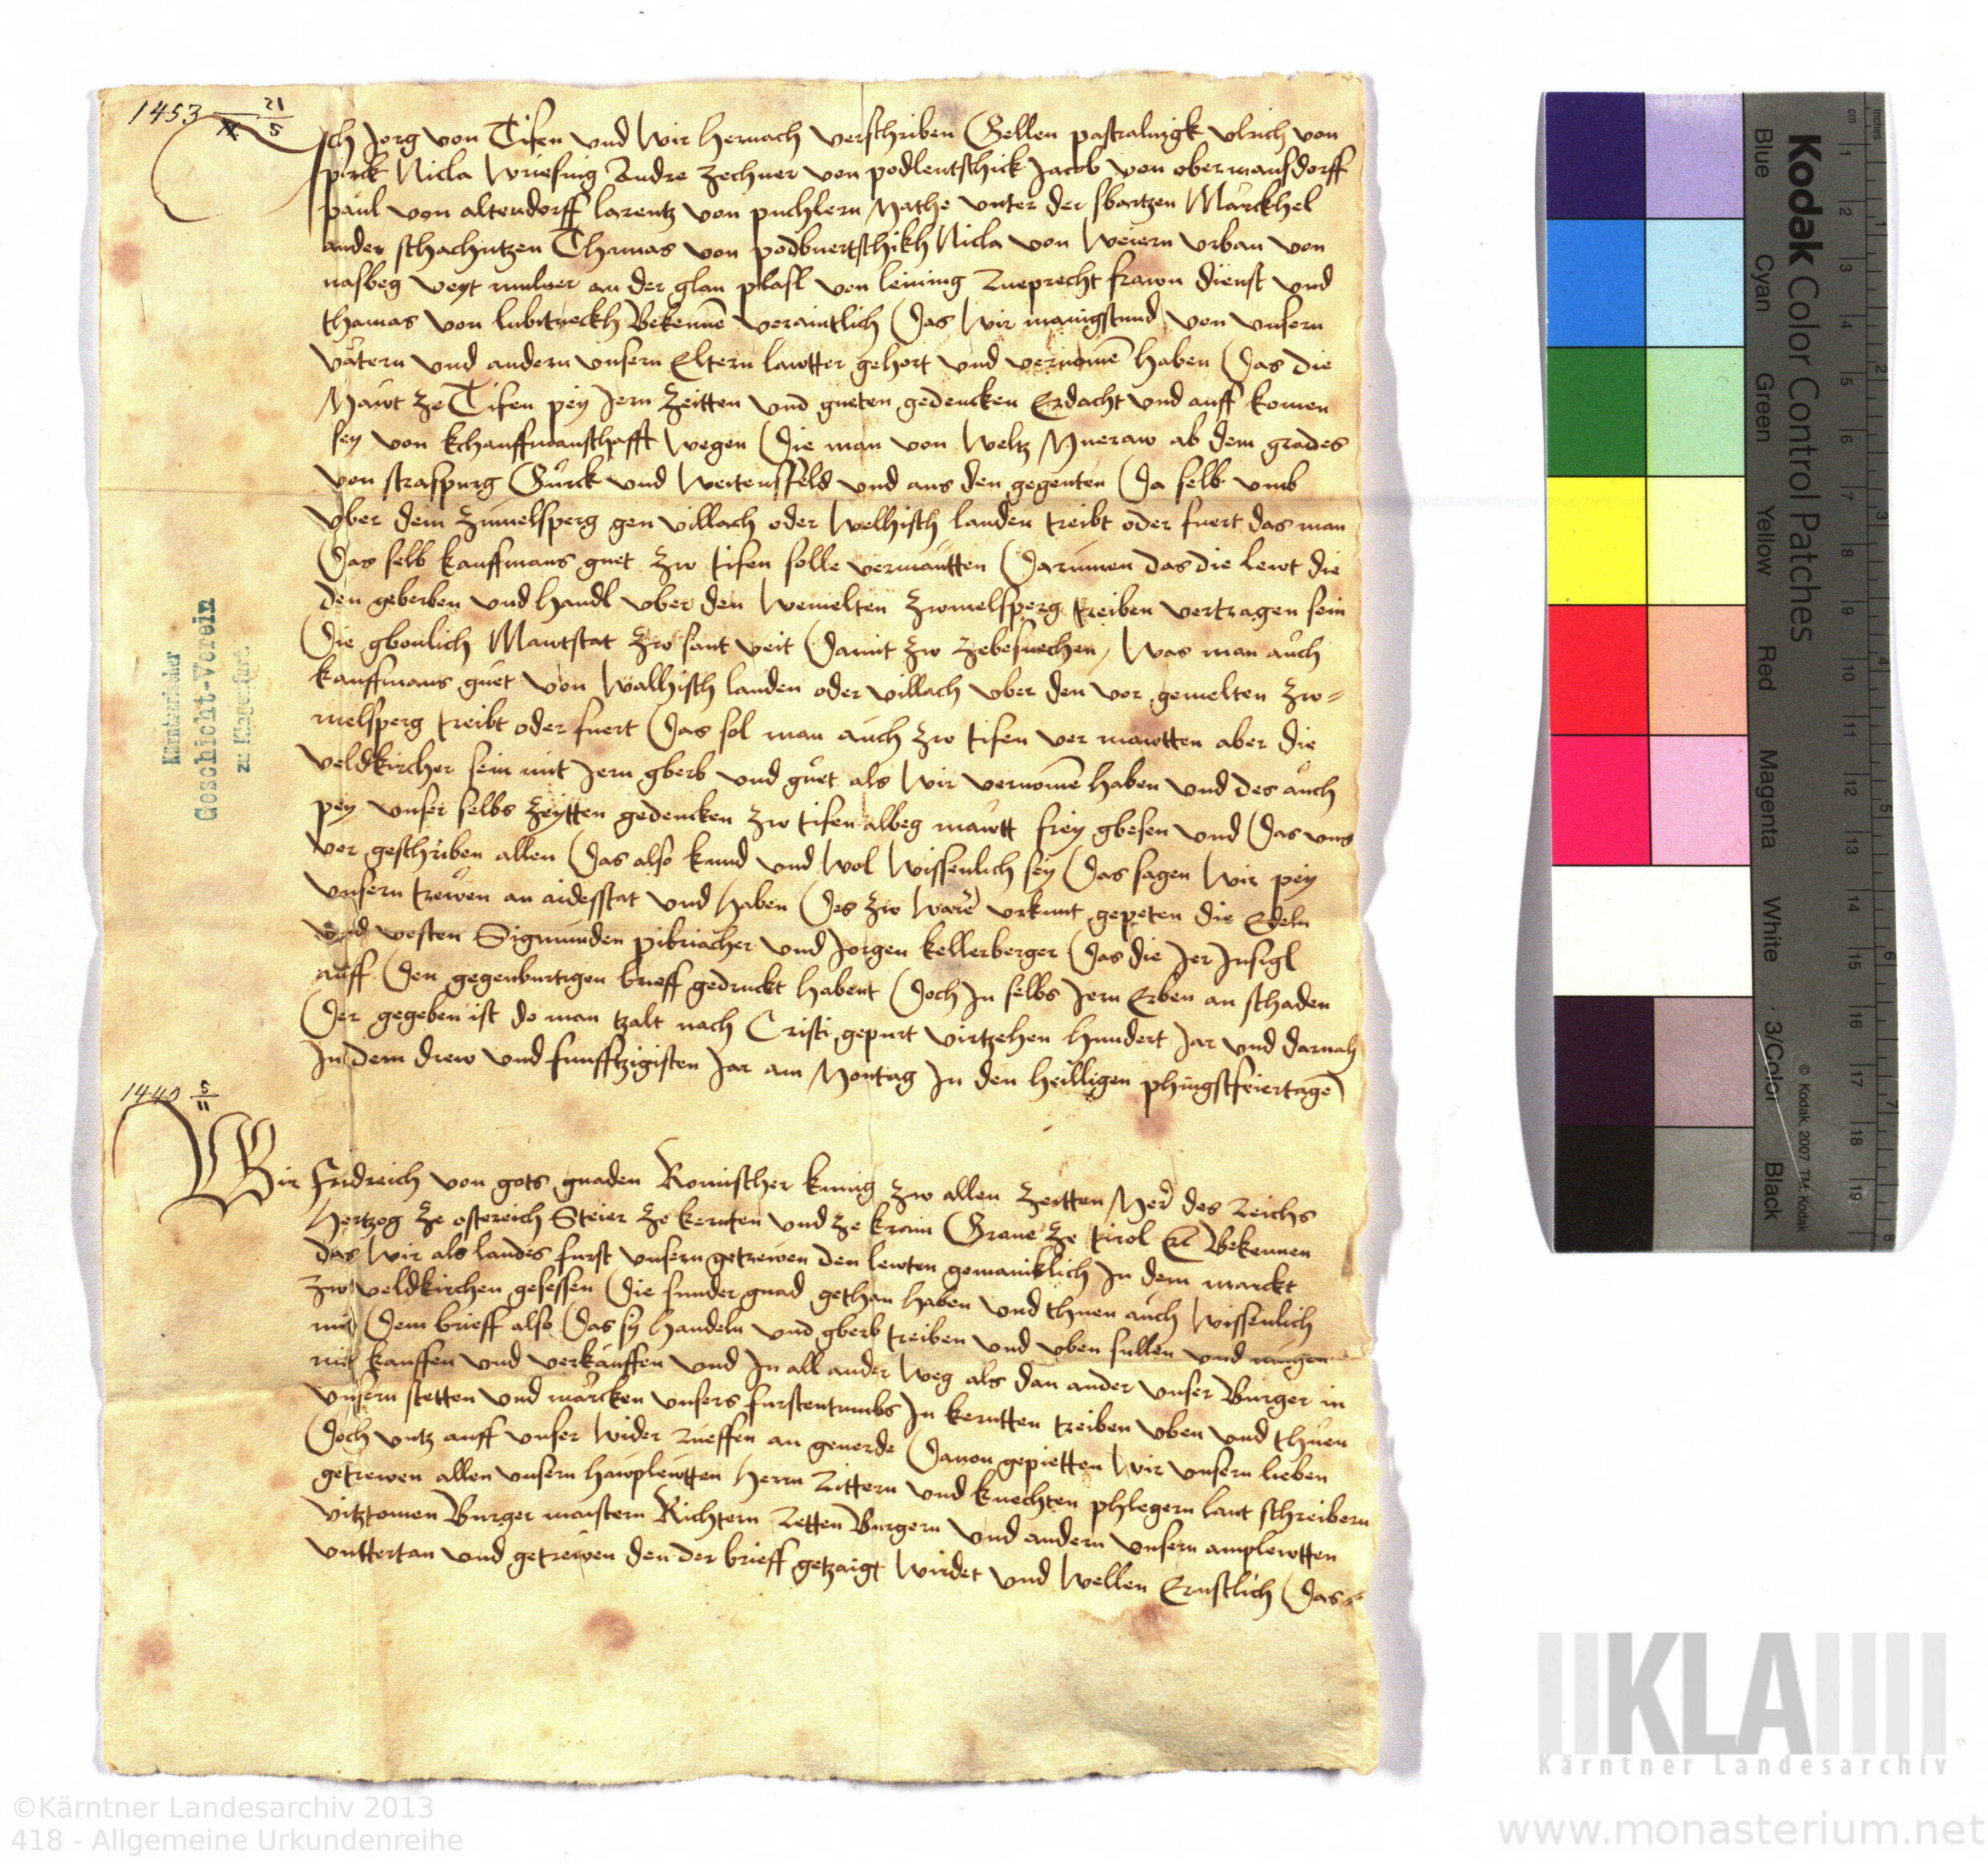 1453 21/5
Ich Jorg von Tifen vnd Wir hernach verschriben Gellen pastralnigk vlrich von
pirck Nicla Wriesnig Andre zechner von podlentschick Jacob von obermansdorff
paul von altendorff larentz von puchlern Mathe vnter der sbartzen Marckhel
ander schachntzen Thamas von podbuertschikh Nicla von Weiern vrban von
nasbeg veyt mulner an der glan plasl von leining Rueprecht frawn dienst vnd
thamas von lubitneckh Bekenne veraintlich Das Wir manigstund von vnsern
vatern vnd andern vnsern Eltern lawtter gehort vnd vernome haben Das die
Mawt ze Tifen pey Jern Zeitten vnd gueten gedencken Erdacht vnd auff komen
sey von kchauffmanschafft wegen Die man von Weltz Mueraw ab dem grades
von straspurg Gurck vnd Weitensfeld vnd aus den gegenten Da selb vmb
vber dem Zumelsperg gen villach oder Welhisch landen treibt oder fuert das man
Das selb kauffmans guet zw tifen solle vermautten Darumen das die lewt die
den geberben vnd handl vber den Wemelten Zwmelsperg treiben vertragen sein
Die gbonlich Mawtstat zw sant veit Damit zw zebesuechen, Was man auch
kauffmans guet von Walhisch landen oder villach vber den vor gemelten Zw=
melsperg treibt oder fuert Das sol man auch zw tifen ver mawtten aber die
veldkircher sein mit Jern gberb vnd guet als Wir vernome haben vnd des auch
pey vnser selbs Zeytten gedencken zw tifen albeg mawtt frey gbesen vnd Das vns
vor geschriben allen Das also kund vnd Wol Wissenlich sey Das sagen Wir pey
vnsern trewen an aidesstat vnd haben Des zw Ware vrkunt gepeten die Edeln
vnd vesten Sigmunden pibriacher vnd Jorgen kellerberger Das die Jer Insigl
auff Den gegenburtigen brieff gedruckt habent Doch In selbs Jern Erben an schaden
Der gegeben ist do man tzalt nach Cristi gepurt virtzehen hundert Jar vnd darnah
In dem drew vnd funfftzigisten Jar am Montag In den heilligen phingstfeiertage
1440 5/11
Wir fridreich von gots gnaden Romischer kunig zw allen Zeitten Merer des Reichs
Hertzog ze osterreich Steier ze kernten vnd ze krain Graue ze tirol etc Bekennen
das Wir als landes furst vnsern getrewen den lewten gemaniklich In dem marckt
zw veldkirchen gesessen Die sunder gnad gethan haben vnd thuen auch Wissenlich
mit Dem brieff also Das sy handeln vnd gberb treiben vnd vben sullen vnd mugen
mit kauffen vnd verkauffen vnd In all ander Weg als dan ander vnser Burger in
vnsern stetten vnd marcken vnsers furstentumbs In kerntten treiben vben vnd thuen
Doch vntz auff vnser Wider Rueffen an geuerde Dauon gepietten Wir vnsern lieben
getrewen allen vnsern hawplewtten Herrn Rittern vnd knechten phlegern lant schreibern
vitztomen Burger maistern Richtern Retten Burgern vnd andern vnsern amplewtten
vnttertan vnd getrewen den der brieff getzaigt Wirdet vnd Wellen Ernstlich Das=
Kärntnerischer
Geschicht-Verein
zu Klagenfurt.
Kodak Color Control Patches
Blue Cyan Green Yellow Red Magenta White 3/Color Black
© Kodak, 2007 TM: Kodak
cm 1 2 3 4 5 6 7 8 9 10 11 12 13 14 15 16 17 18 19
inches 1 2 3 4 5 6 7 8
KLA
Kärntner Landesarchiv
©Kärntner Landesarchiv 2013
418 - Allgemeine Urkundenreihe
www.monasterium.net